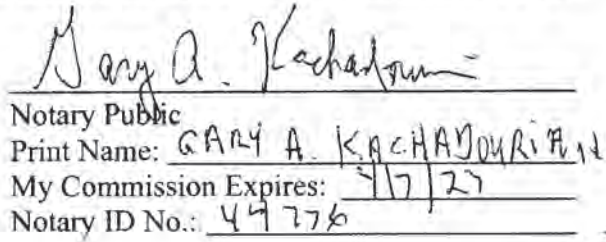 Gary A. Kachadourian
Notary Public
Print Name: GARY A. KACHADOURIAN
My Commission Expires:
Notary ID No.: 44776